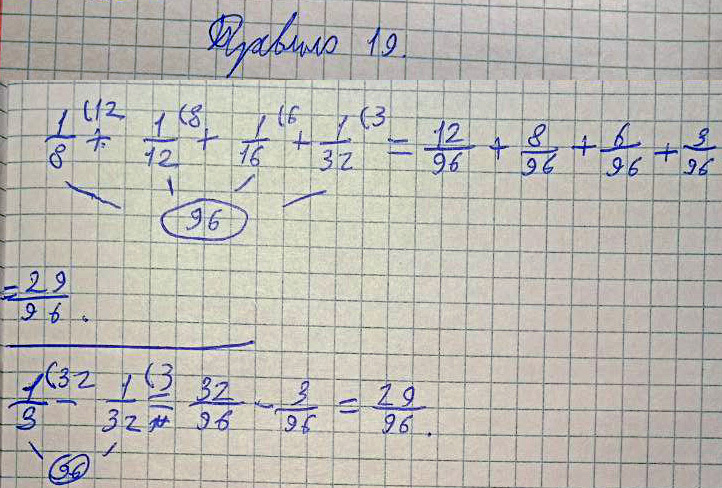 Правило 19.
1/8 (12 + 1/12 (8 + 1/16 (6 + 1/32 (3 = 12/96 + 8/96 + 6/96 + 3/96
96
= 29/96.
1/3 (32 - 1/32 (3 = 32/96 - 3/96 = 29/96.
96